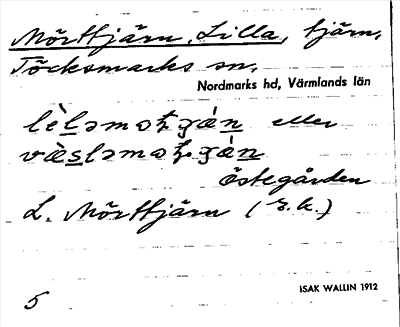 Mörttjärn, Lilla, tjärn,
Töcksmarks sn.
Nordmarks hd, Värmlands län
eller
östegården
L. Mörttjärn (r.k.)
ISAK WALLIN 1912
5